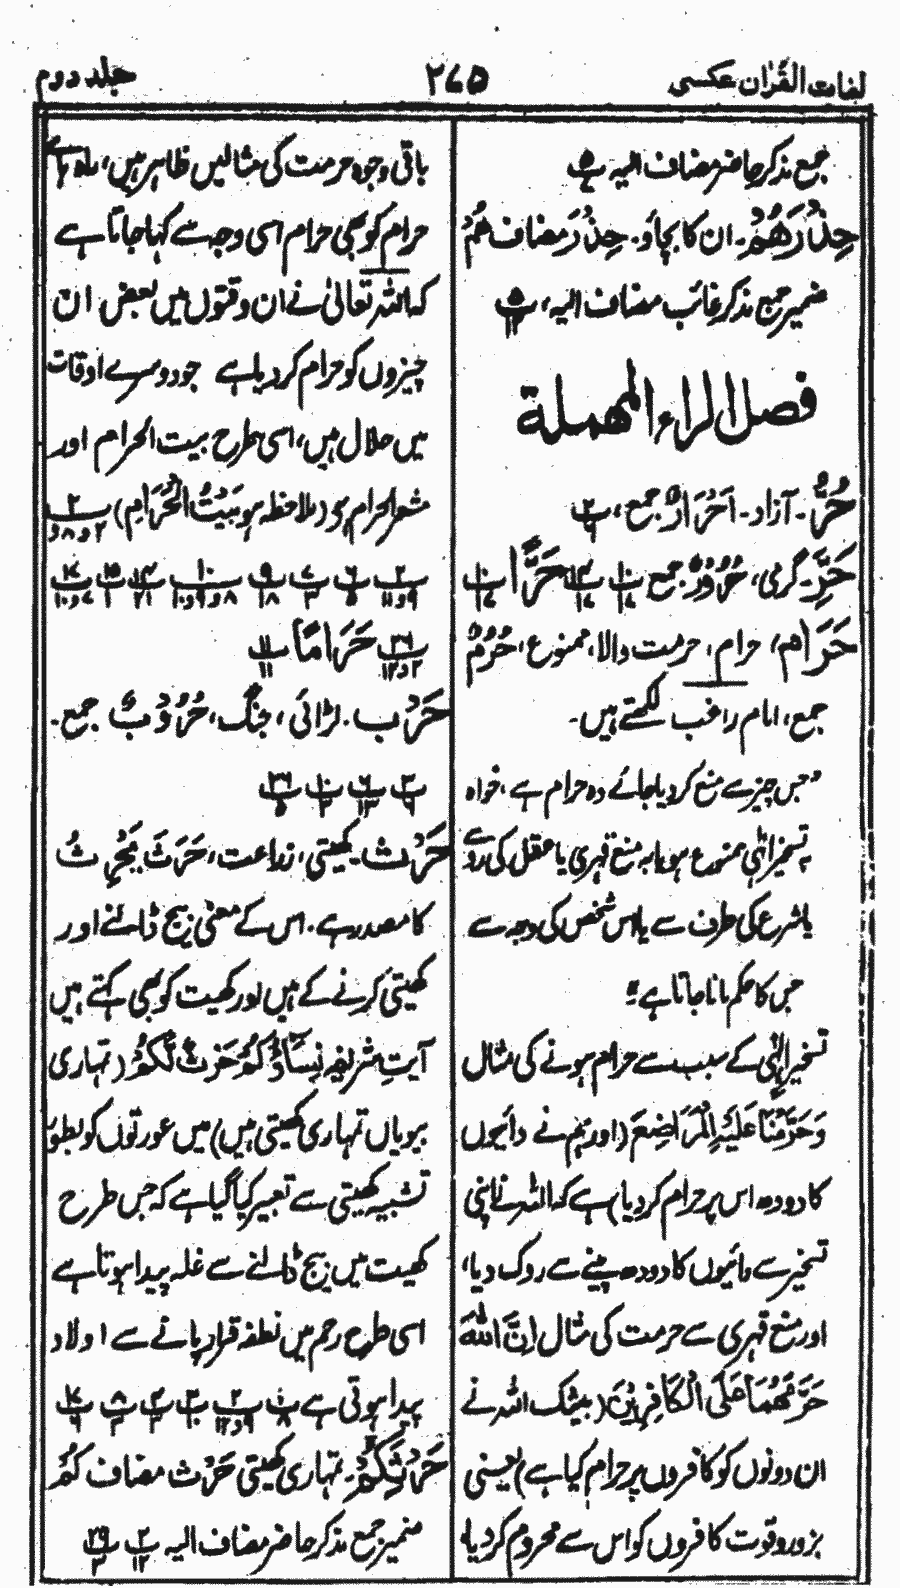 لغات القرآن عکسی
۲۷۵
جلد دوم
جمع مذکر حاضر مضاف الیہ ۵
حِذْرَهُمْ۔ ان کا بچاؤ۔ حِذْرَ مضاف هُمْ
ضمیر جمع مذکر غائب مضاف الیہ، ۵ ۱۲
فصل الراء المهملة
حُرٌّ۔ آزاد۔ اَحْرَارٌ جمع، ۲ ۶
حَرٌّ۔ گرمی، حُرُوْرٌ جمع ۱۰ ۱۷ ۱۰ ۱۷ حَرًّا ۱۰ ۱۷
حَرَامٌ، حرام، حرمت والا، ممنوع، حُرُمٌ
جمع، امام راغب لکھتے ہیں۔
"جس چیز سے منع کر دیا جائے وہ حرام ہے، خواہ
تسخیر الٰہی ممنوع ہو یا بہ منع قہری یا عقل کی رو سے
یا شرع کی طرف سے یا اس شخص کی وجہ سے
جس کا حکم مانا جاتا ہے"
تسخیر الٰہی کے سبب سے حرام ہونے کی مثال
وَحَرَّمْنَا عَلَيْهِ الْمَرَاضِعَ (اور ہم نے دائیوں
کا دودھ اس پر حرام کر دیا) ہے کہ اللہ نے اپنی
تسخیر سے دائیوں کا دودھ پینے سے روک دیا،
اور منع قہری سے حرمت کی مثال اِنَّ اللّٰهَ
حَرَّمَهُمَا عَلَى الْكَافِرِيْنَ (بیشک اللہ نے
ان دونوں کو کافروں پر حرام کیا ہے) یعنی
بزور و قوت کافروں کو اس سے محروم کر دیا،
باقی وجوہ حرمت کی مثالیں ظاہر ہیں، ماہ ہائے
حرام کو بھی حرام اسی وجہ سے کہا جاتا ہے
کہ اللہ تعالیٰ نے ان وقتوں میں بعض ان
چیزوں کو حرام کر دیا ہے جو دوسرے اوقات
میں حلال ہیں، اسی طرح بیت الحرام اور
مشعر الحرام ہے (ملاحظہ ہو بَيْتُ الْحَرَامِ) ۲ ۲ و ۸ و
۲ ۹ و ۱۱ ۶ ۵ ۷ ۳ ۹ ۱۸ ۱۰ ۸ و ۹ و ۱۰ ۱۴ ۲۱ ۱۵ ۱ ۱۷ ۷ و ۱۰
۲۶ ۲ و ۱۲ حَرَامًا ۱۱ ۱۱
حَرْب۔ لڑائی، جنگ، حُرُوْبٌ جمع۔
۳ ۶ ۶ ۱۳ ۱۰ ۳ ۲۶ ۵
حَرْث۔ کھیتی، زراعت، حَرَثَ يَحْرِثُ
کا مصدر ہے۔ اس کے معنی بیج ڈالنے اور
کھیتی کرنے کے ہیں اور کھیت کو بھی کہتے ہیں
آیتِ شریفہ نِسَاؤُكُمْ حَرْثٌ لَّكُمْ (تمہاری
بیویاں تمہاری کھیتی ہیں) میں عورتوں کو بطور
تشبیہ کھیتی سے تعبیر کیا گیا ہے کہ جس طرح
کھیت میں بیج ڈالنے سے غلہ پیدا ہوتا ہے
اسی طرح رحم میں نطفہ قرار پانے سے اولاد
پیدا ہوتی ہے
حَرْثَكُمْ، تمہاری کھیتی حَرْث مضاف كُمْ
ضمیر جمع مذکر حاضر مضاف الیہ ۲ ۱۲ ۲۹ ۳